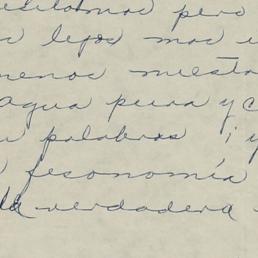 pero
lejos mas
menos nuestra
agua pura y c
palabras ; y
fesonomía
la verdadera